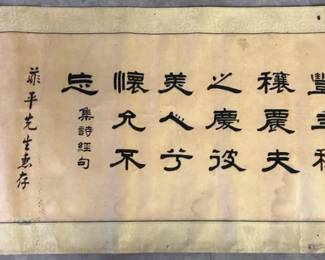 豐年穰
穰農夫
之慶彼
美人兮
懷允不
忘
集詩經句
平先生惠存